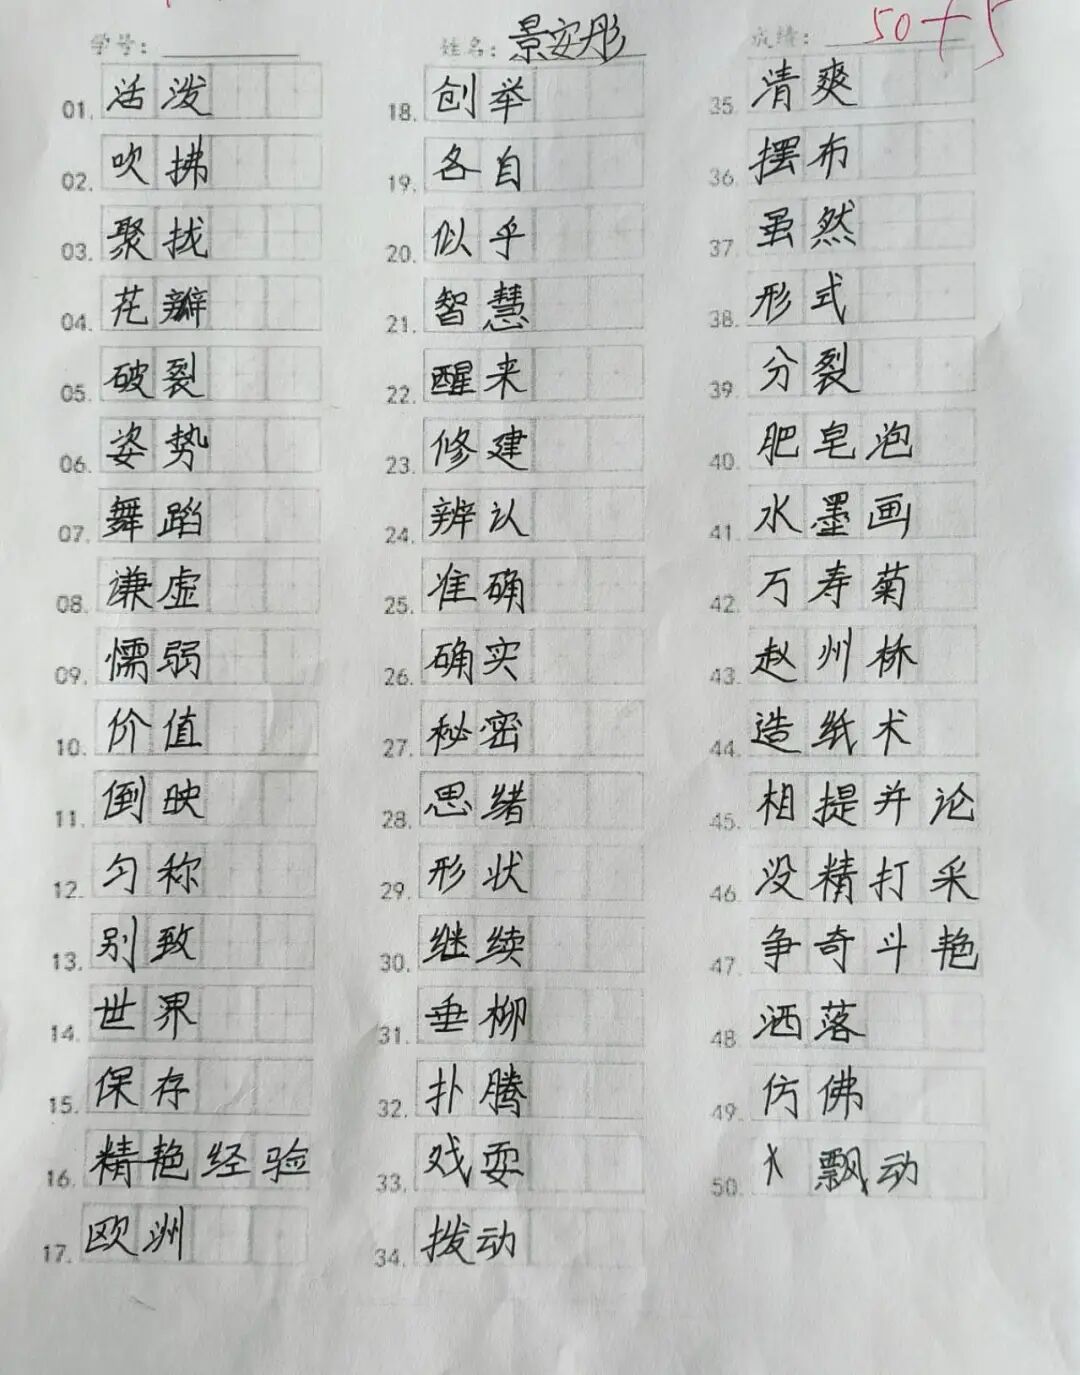 学号： 姓名：景安彤 成绩：50+5
01. 活泼
02. 吹拂
03. 聚拢
04. 花瓣
05. 破裂
06. 姿势
07. 舞蹈
08. 谦虚
09. 懦弱
10. 价值
11. 倒映
12. 匀称
13. 别致
14. 世界
15. 保存
16. 精艳经验
17. 欧洲
18. 创举
19. 各自
20. 似乎
21. 智慧
22. 醒来
23. 修建
24. 辨认
25. 准确
26. 确实
27. 秘密
28. 思绪
29. 形状
30. 继续
31. 垂柳
32. 扑腾
33. 戏耍
34. 拨动
35. 清爽
36. 摆布
37. 虽然
38. 形式
39. 分裂
40. 肥皂泡
41. 水墨画
42. 万寿菊
43. 赵州桥
44. 造纸术
45. 相提并论
46. 没精打采
47. 争奇斗艳
48. 洒落
49. 仿佛
50. 飘动